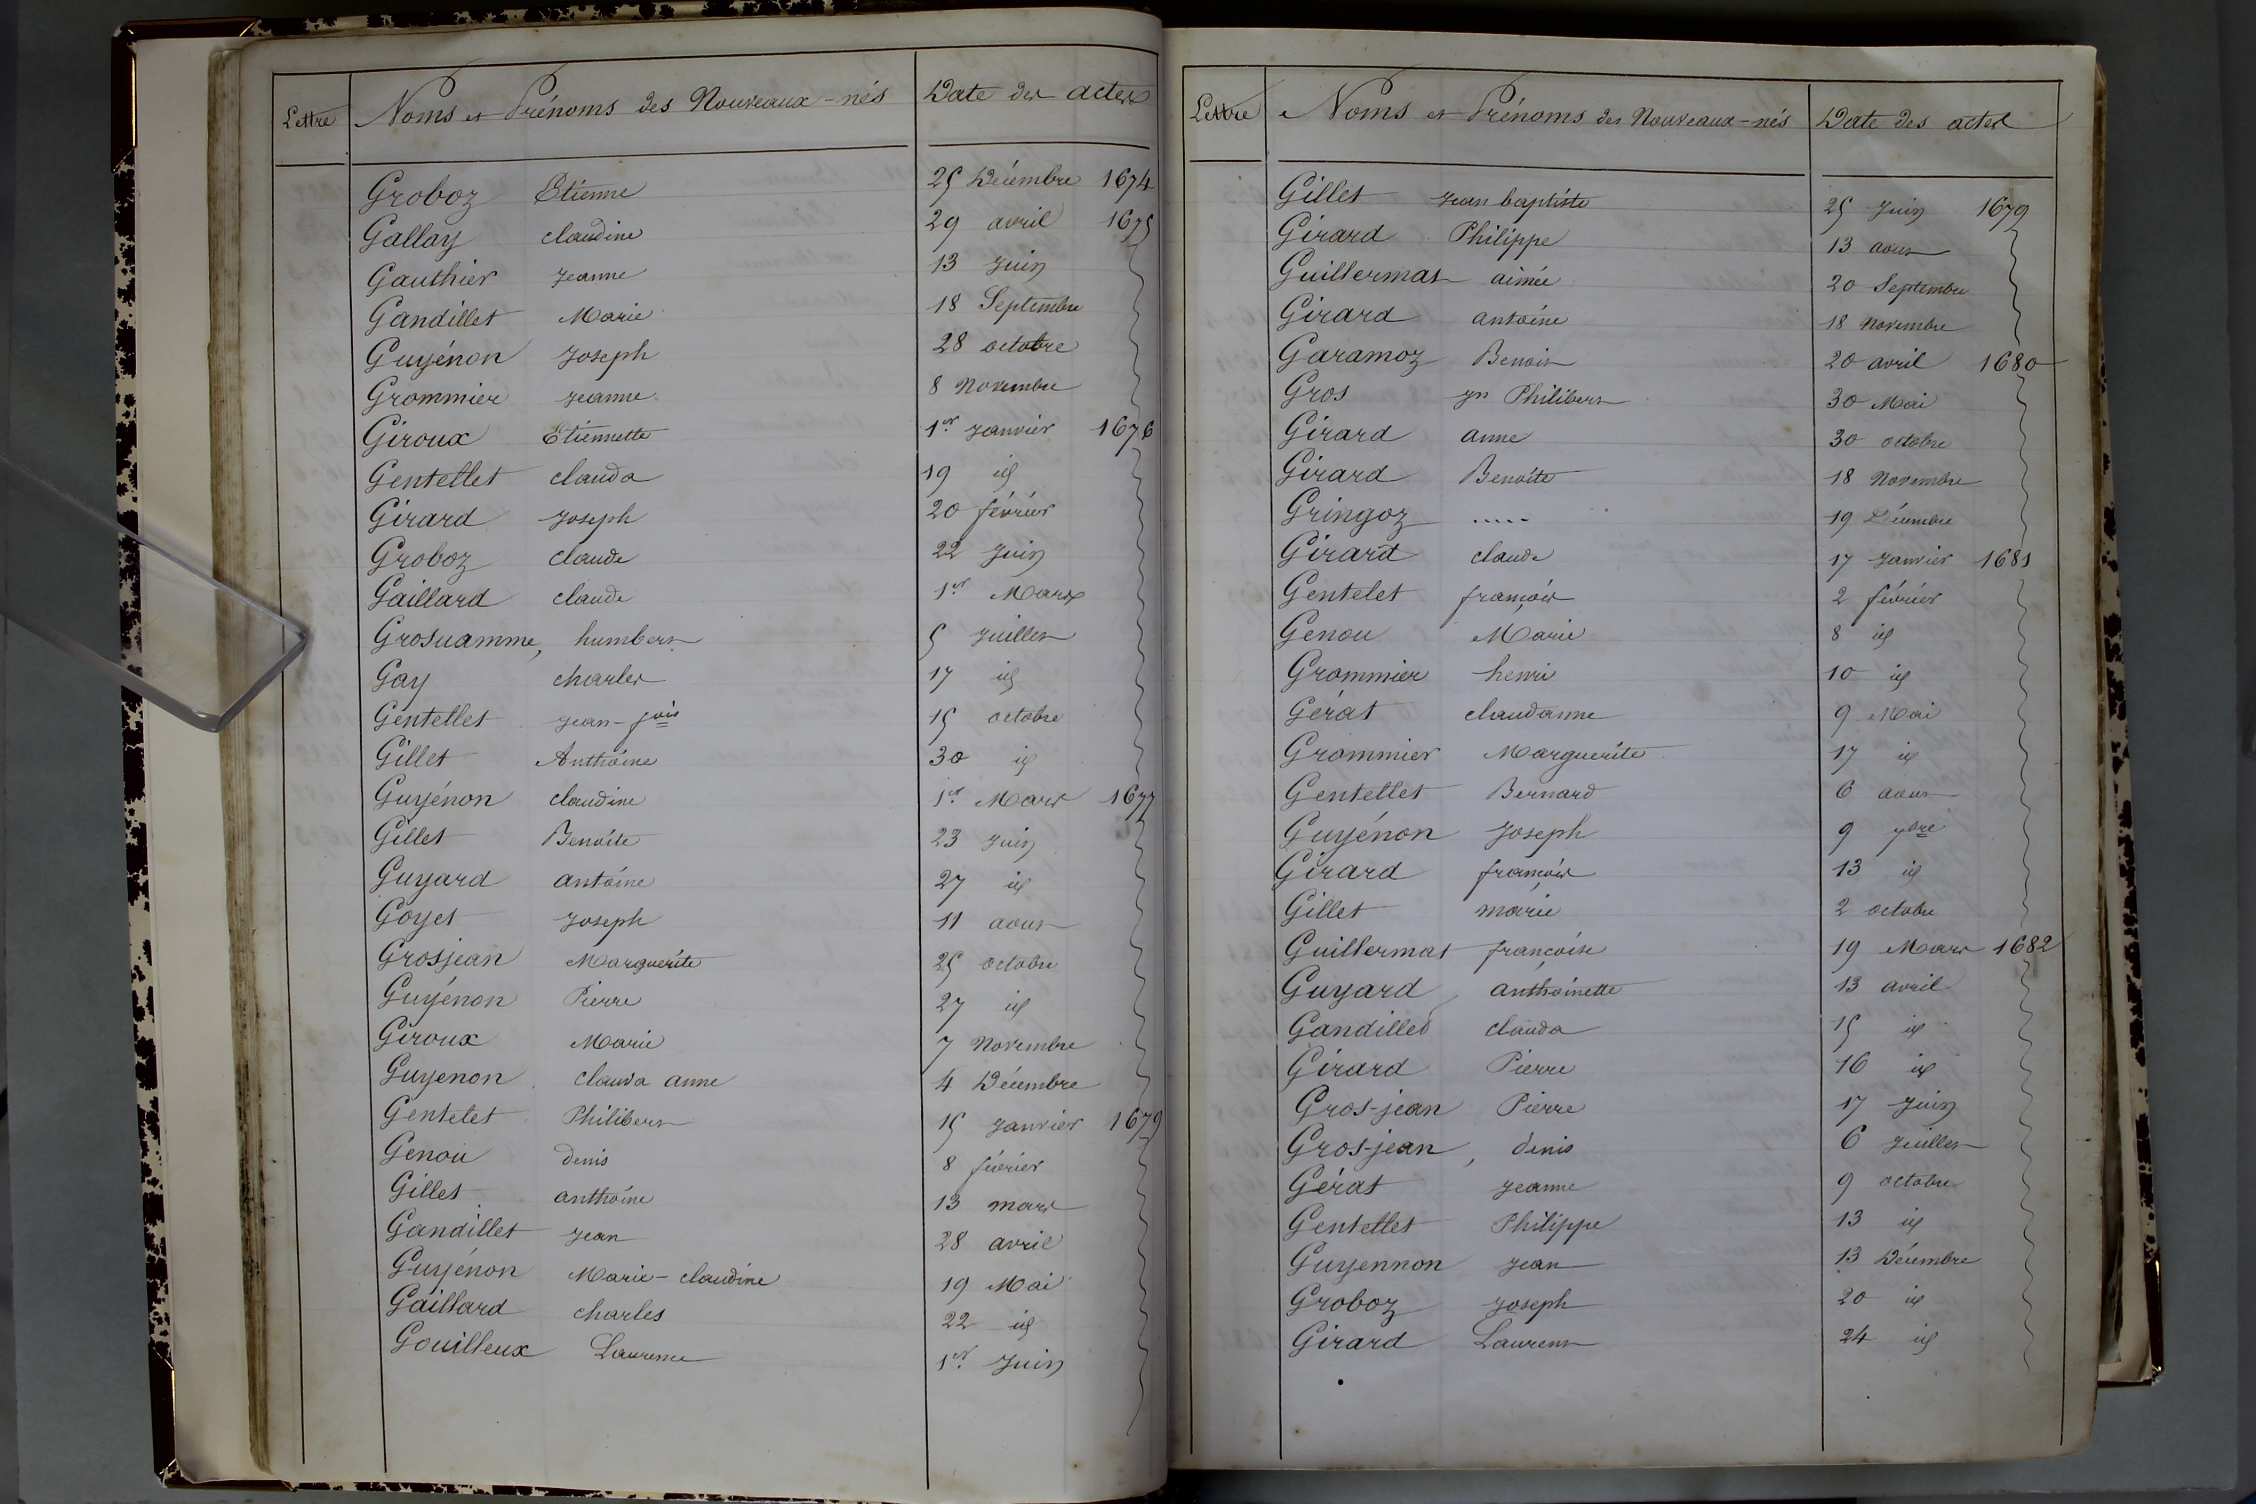 Lettre Noms et Prénoms des Nouveaux-nés Date des actes
Groboz Etienne 25 Décembre 1674
Gallay claudine 29 avril 1675
Gauthier Jeanne 13 Juin
Gandillet Marie 18 Septembre
Guyénon Joseph 28 octobre
Grommier Jeanne 8 Novembre
Giroux Etiennette 1er Janvier 1676
Gentellet clauda 19 id
Girard Joseph 20 février
Groboz claude 22 Juin
Gaillard claude 1er Mars
Grosuamme, humbert 5 Juillet
Gay charles 17 id
Gentellet Jean-fois 15 octobre
Gillet Anthoine 30 id
Guyénon claudine 1er Mars 1677
Gillet Benoîte 23 Juin
Guyard antoine 27 id
Goyet Joseph 11 aout
Grosjean Marguerite 25 octobre
Guyénon Pierre 27 id
Giroux Marie 7 Novembre
Guyenon clauda anne 4 Décembre
Gentelet Philibert 15 Janvier 1679
Genou denis 8 février
Gillet anthoine 13 mars
Gandillet Jean 28 avril
Guyénon Marie-claudine 19 Mai
Gaillard charles 22 id
Gouilleux Laurence 1er Juin
Lettre Noms et Prénoms des Nouveaux-nés Date des actes
Gillet Jean baptiste 25 Juin 1679
Girard Philippe 13 aout
Guillermat aimée 20 Septembre
Girard antoine 18 Novembre
Garamoz Benoit 20 avril 1680
Gros Jn Philibert 30 Mai
Girard anne 30 octobre
Girard Benoîte 18 Novembre
Gringoz ..... 19 Décembre
Girard claude 17 Janvier 1681
Gentelet françois 2 février
Genou Marie 8 id
Grommier henri 10 id
Gérat claudanne 9 Mai
Grommier Marguerite 17 id
Gentellet Bernard 6 aout
Guyénon Joseph 9 7bre
Girard françois 13 id
Gillet marie 2 octobre
Guillermat françoise 19 Mars 1682
Guyard anthoinette 13 avril
Gandillet clauda 15 id
Girard Pierre 16 id
Gros-jean Pierre 17 Juin
Gros-jean, denis 6 Juillet
Gérat Jeanne 9 octobre
Gentellet Philippe 13 id
Guyennon Jean 13 Décembre
Groboz Joseph 20 id
Girard Laurent 24 id